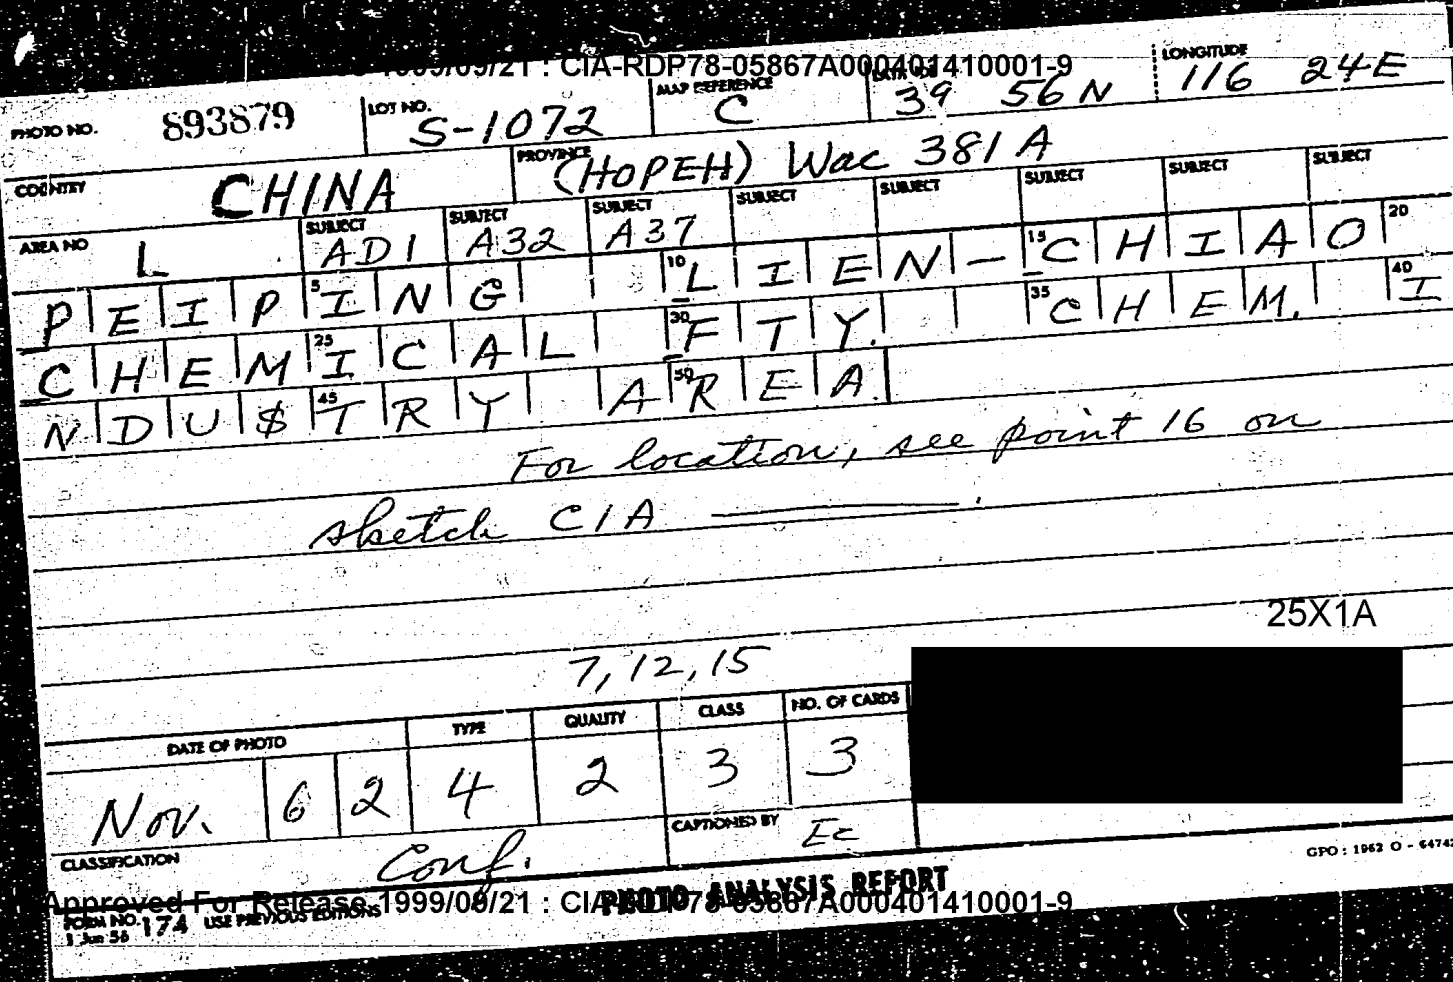 1999/09/21 : CIA-RDP78-05867A000401410001-9
PHOTO NO. 893879 LOT NO. S-1072 MAP REFERENCE C 39 56 N LONGITUDE 116 24E
COUNTRY CHINA PROVINCE (HOPEH) Wac 381 A
AREA NO L SUBJECT AD1 SUBJECT A32 SUBJECT A37 SUBJECT SUBJECT SUBJECT SUBJECT SUBJECT
PEIP 5 ING 10 LIEN- 15 CHIAO 20
CHEM 25 ICAL 30 FTY. 35 CHEM. 40 I
NDU$ 45 TRY A 50 REA.
For location, see point 16 on
sketch CIA ———.
25X1A
7, 12, 15
DATE OF PHOTO TYPE QUALITY CLASS NO. OF CARDS
Nov. 6 2 4 2 3 3
CLASSIFICATION Conf. CAPTIONED BY Ec
GPO : 1962 O - 6474
PHOTO ANALYSIS REPORT
Approved For Release 1999/09/21 : CIA-RDP78-05867A000401410001-9
FORM NO. 174 USE PREVIOUS EDITIONS
1 Jun 56